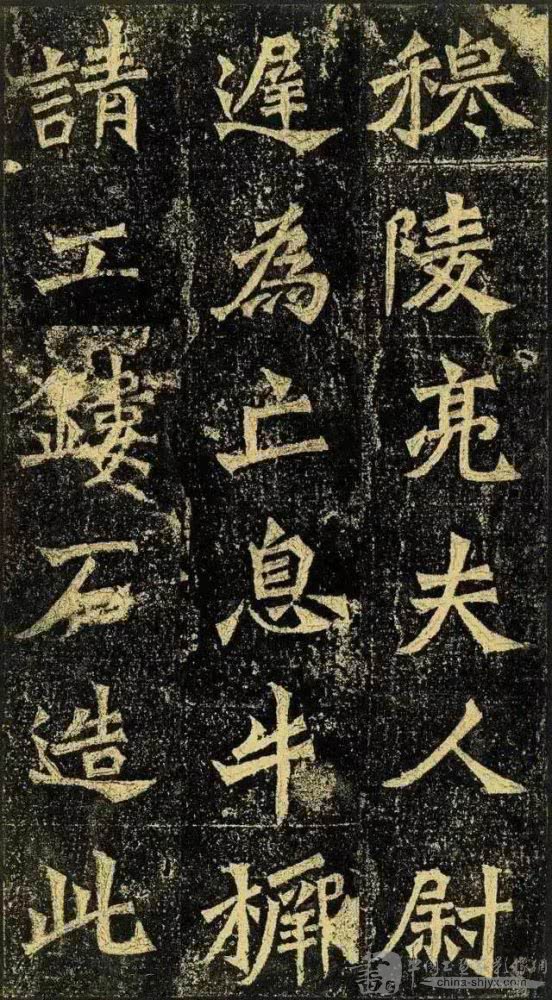 穆陵亮夫人尉
遲為亡息牛橛
請工鏤石造此
www.china-shjyx.com